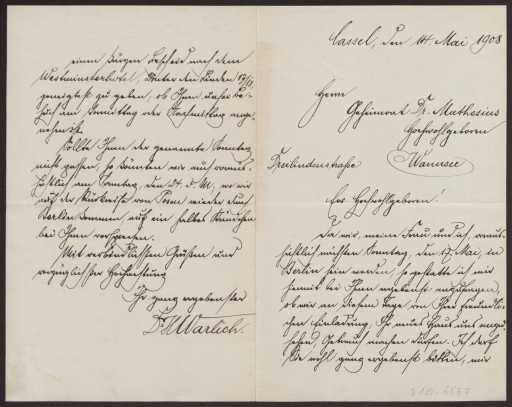 Cassel, den 14. Mai 1908
Herrn
Geheimrat Dr. Muthesius
Hochwohlgeboren
Dreilindenstraße Wannsee
Ew. Hochwohlgeboren!
Da wir, meine Frau und ich, voraus-
sichtlich nächsten Sonntag, den 17. Mai, in
Berlin sein werden, so gestatte ich mir
hiermit bei Ihnen ergebenst anzufragen,
ob wir an diesem Tage von Ihrer freundli-
chen Einladung, Ihr neues Haus uns anzu-
sehen, Gebrauch machen dürfen. Ich darf
Sie wohl ganz ergebenst bitten, mir
einen kurzen Bescheid nach dem
Westminsterhotel, Unter den Linden 17/18
geneigtest zu geben, ob Ihnen unser Be-
such am Vormittag oder Nachmittag ange-
nehm ist.
Sollte Ihnen der genannte Sonntag
nicht passen, so könnten wir auch voraus-
sichtlich am Sonntag, den 24. d. M., wo wir
auf der Rückreise von Posen wieder durch
Berlin kommen, auf ein halbes Stündchen
bei Ihnen vorsprechen.
Mit verbindlichsten Grüßen und
vorzüglichster Hochachtung
Ihr ganz ergebenster
Dr. Warlich.